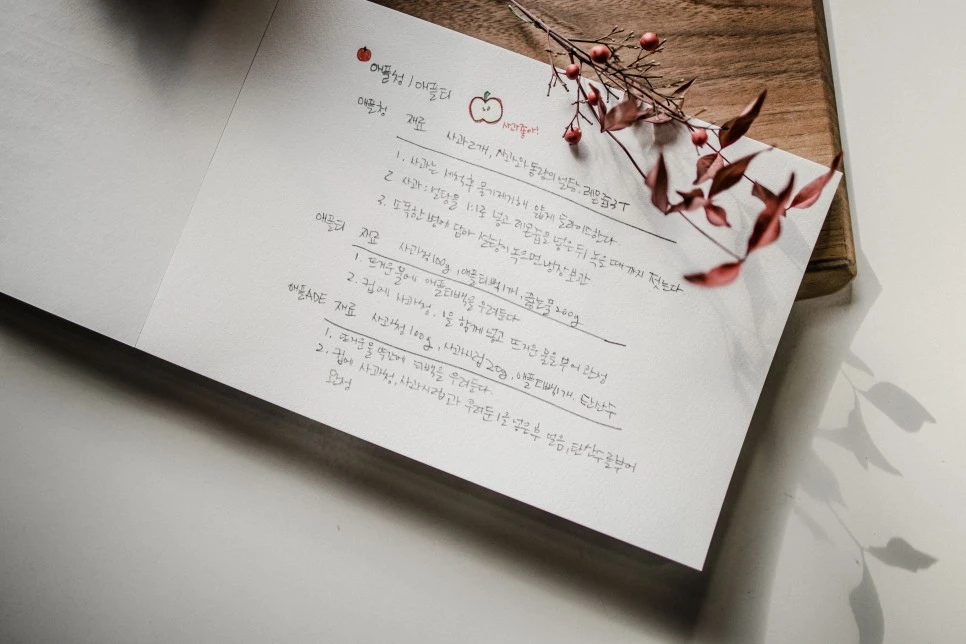 애플청 / 애플티
사과좋아!
애플청 재료 사과2개, 사과와 동량의 설탕, 레몬즙3T
1. 사과는 세척후 물기제거해 얇게 슬라이스한다.
2 사과:설탕을 1:1로 넣고 레몬즙을 넣은 뒤 녹을 때까지 젓는다
3. 소독한 병에 담아 설탕이 녹으면 냉장보관
애플티 재료 사과청100g, 애플티백1개, 뜨거운물200g
1. 뜨거운물에 애플티백을 우려둔다
2. 컵에 사과청, 1을 함께 넣고 뜨거운 물을 부어 완성
애플ADE 재료 사과청100g, 사과시럽20g, 애플티백1개, 탄산수
1. 뜨거운물 약간에 티백을 우려둔다.
2. 컵에 사과청, 사과시럽과 우려둔 1을 넣은후 얼음, 탄산수를부어
완성